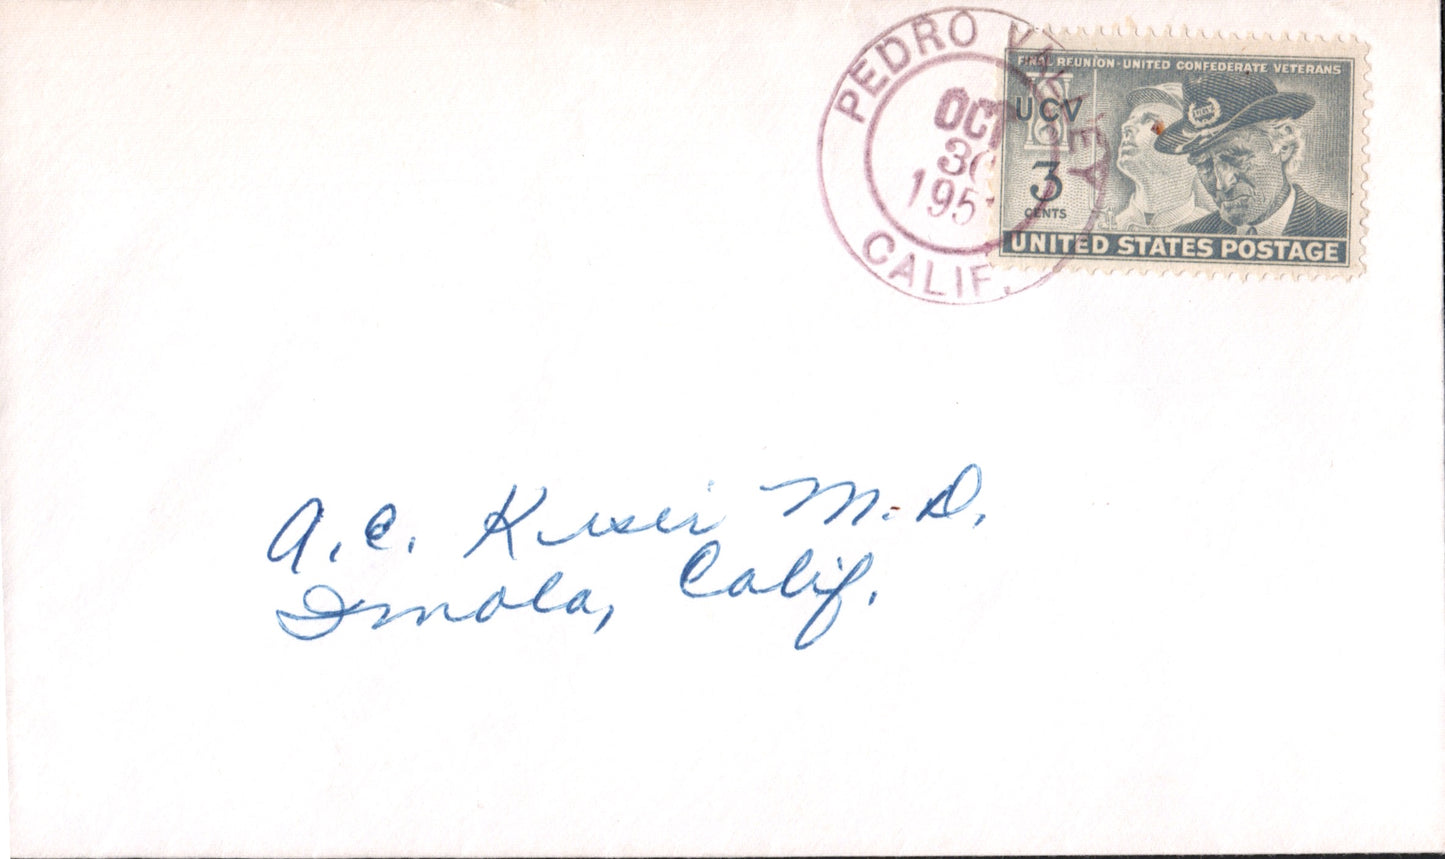 PEDRO VALLEY
OCT
195
CALIF.
FINAL REUNION-UNITED CONFEDERATE VETERANS
UCV
3
CENTS
UNITED STATES POSTAGE
A. C. M. D.
Imola, Calif.